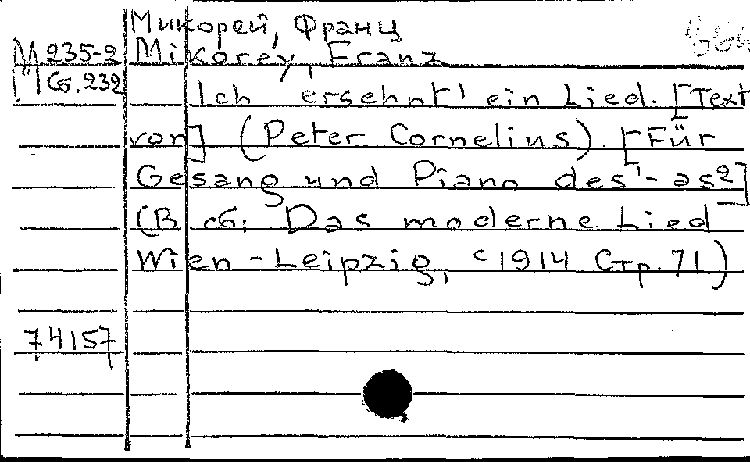 Микорей, Франц
М 235-2 Mikorey, Franz
Сб. 232
Ich ersehnt' ein Lied. [Text
von] (Peter Cornelius). [Für
Gesang und Piano des¹-as²]
(В сб: Das moderne Lied
Wien-Leipzig, c1914 Стр. 71)
74157